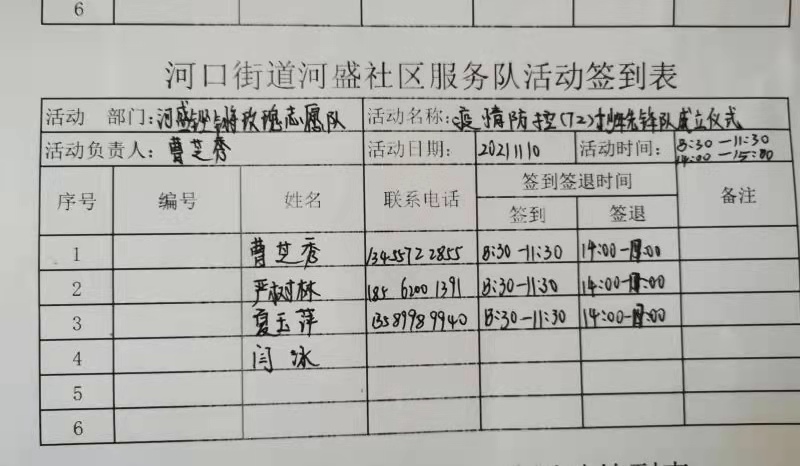 6
河口街道河盛社区服务队活动签到表
活动 部门: 河盛铿锵玫瑰志愿队 活动名称: 疫情防控(72)小时先锋队成立仪式
活动负责人: 曹芝秀 活动日期: 20211110 活动时间: 8:30-11:30
14:00-15:00
序号 编号 姓名 联系电话 签到签退时间 备注
签到 签退
1 曹芝秀 13455722855 8:30-11:30 14:00-:00
2 严树林 185 6200 1391 8:30-11:30 14:00-:00
3 夏玉萍 13589989940 8:30-11:30 14:00-:00
4 闫泳
5
6